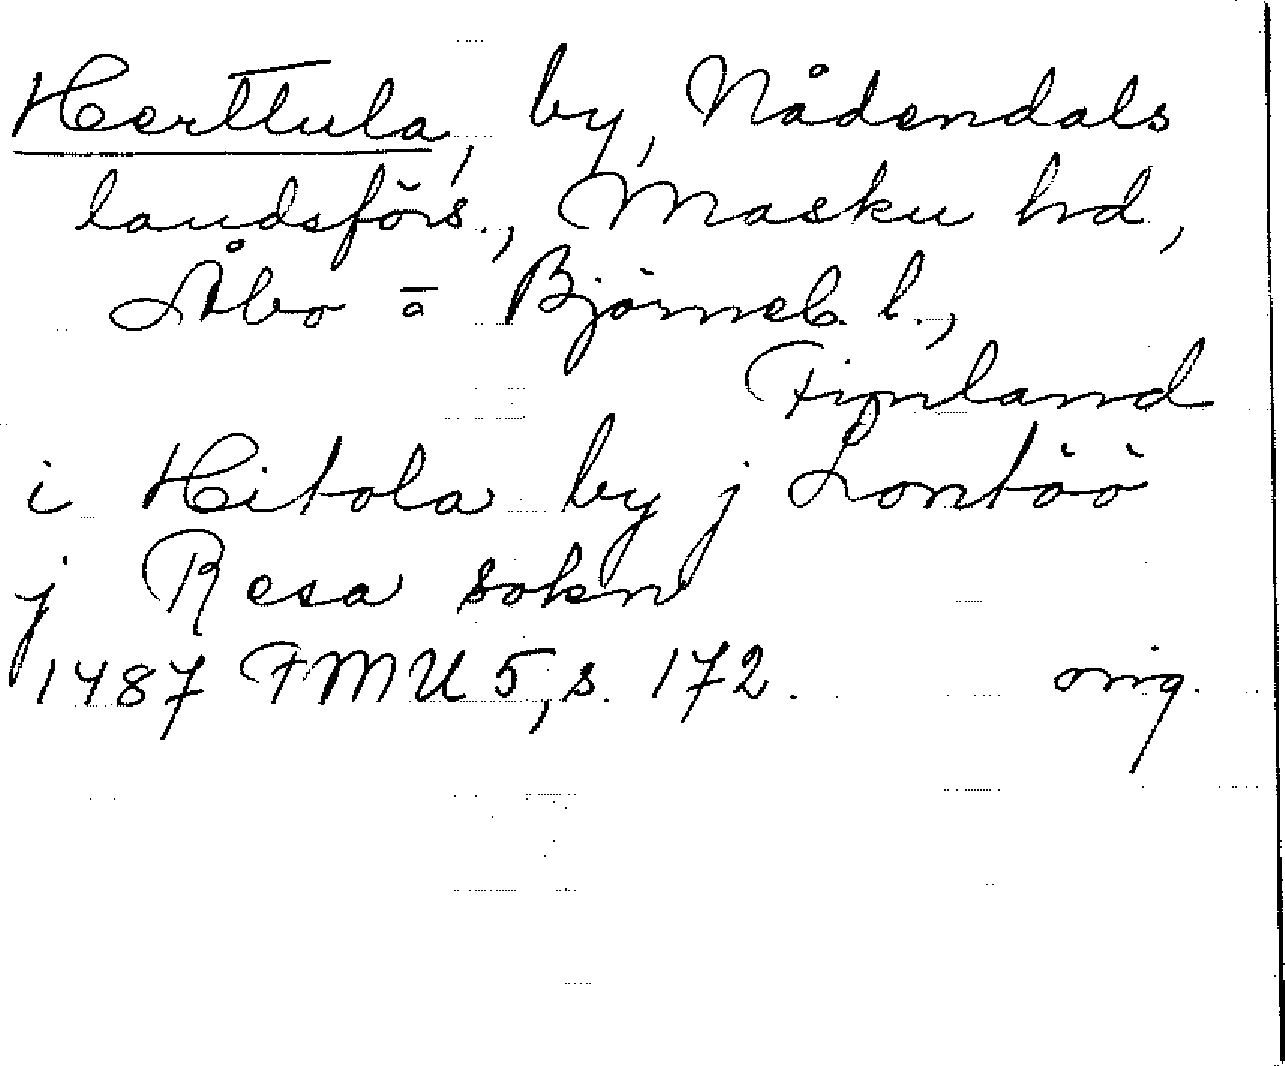 Herttula, by, Nådendals
landsförs., Masku hd,
Åbo o Björneb. l.,
Finland
i Hitola by j Lontöö
j Resa sokn
1487 FMU 5, s. 172. orig.